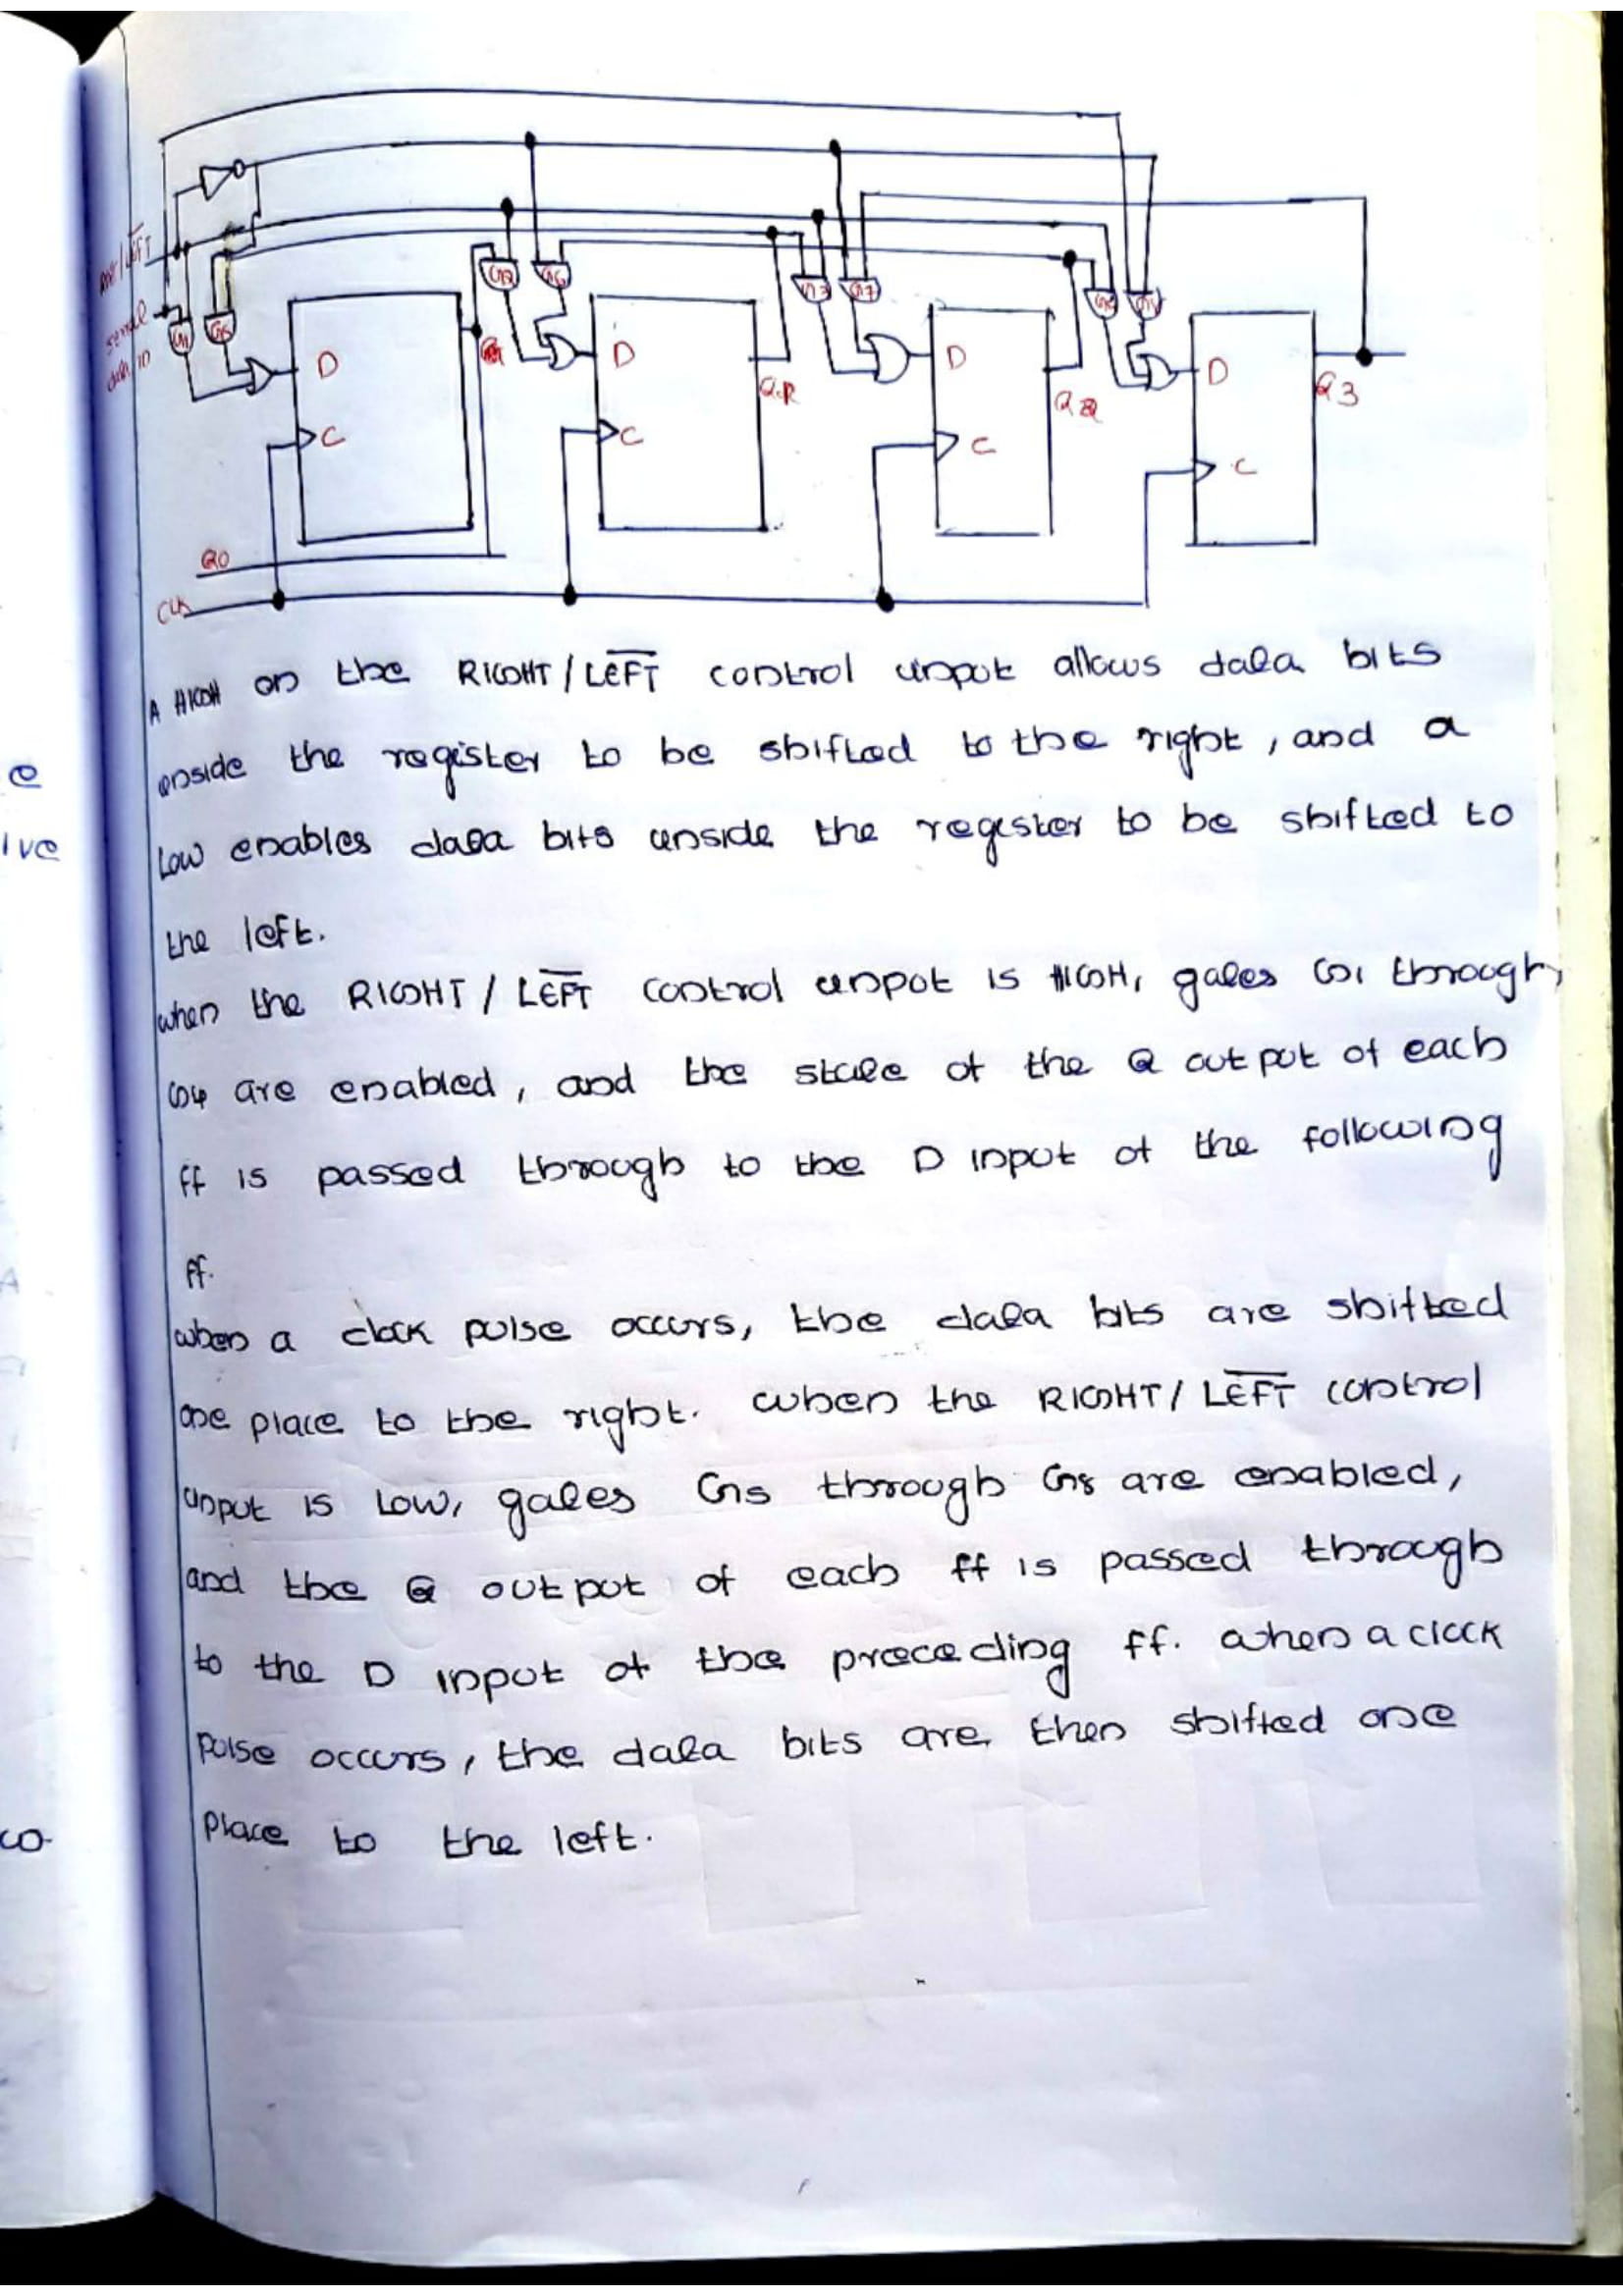 RIGHT/LEFT
serial
data in
G1
G5
D
C
G2
G6
D
C
Q1
G3
G7
D
C
Q2
G4
G8
D
C
Q3
Q0
CLK
A HIGH on the RIGHT/LEFT control input allows data bits
inside the register to be shifted to the right, and a
Low enables data bits inside the register to be shifted to
the left.
when the RIGHT/LEFT control input is HIGH, gates G1 through
G4 are enabled, and the state of the Q output of each
ff is passed through to the D input of the following
ff.
when a clock pulse occurs, the data bits are shifted
one place to the right. when the RIGHT/LEFT control
input is Low, gates G5 through G8 are enabled,
and the Q output of each ff is passed through
to the D input of the preceding ff. when a clock
pulse occurs, the data bits are then shifted one
place to the left.
e
ive